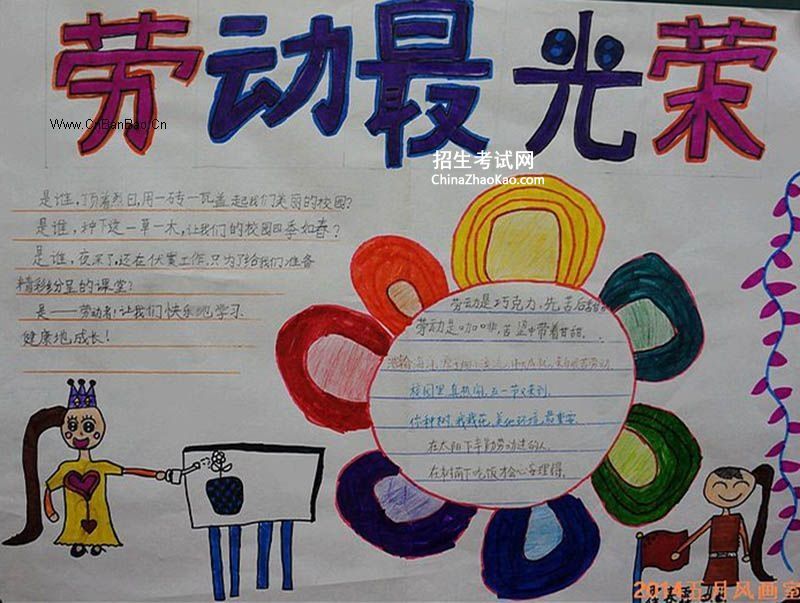 劳动最光荣
Www.CnBanBao.Cn
招生考试网
ChinaZhaoKao.com
是谁，顶着烈日，用一砖一瓦盖起我们美丽的校园？
是谁，种下这一草一木，让我们的校园四季如春？
是谁，夜深了，还在伏案工作，只为了给我们准备
精彩纷呈的课堂？
是——劳动者！让我们快乐地学习
健康地成长！
劳动是巧克力，先苦后
劳动是咖啡，苦涩中带着甘甜．
校园里真热闹，五一节又来到，
你种树，我栽花，美化环境最重要
在太阳下辛勤劳动过的人，
在树荫下吃饭才会心安理得．
2014五月风画室